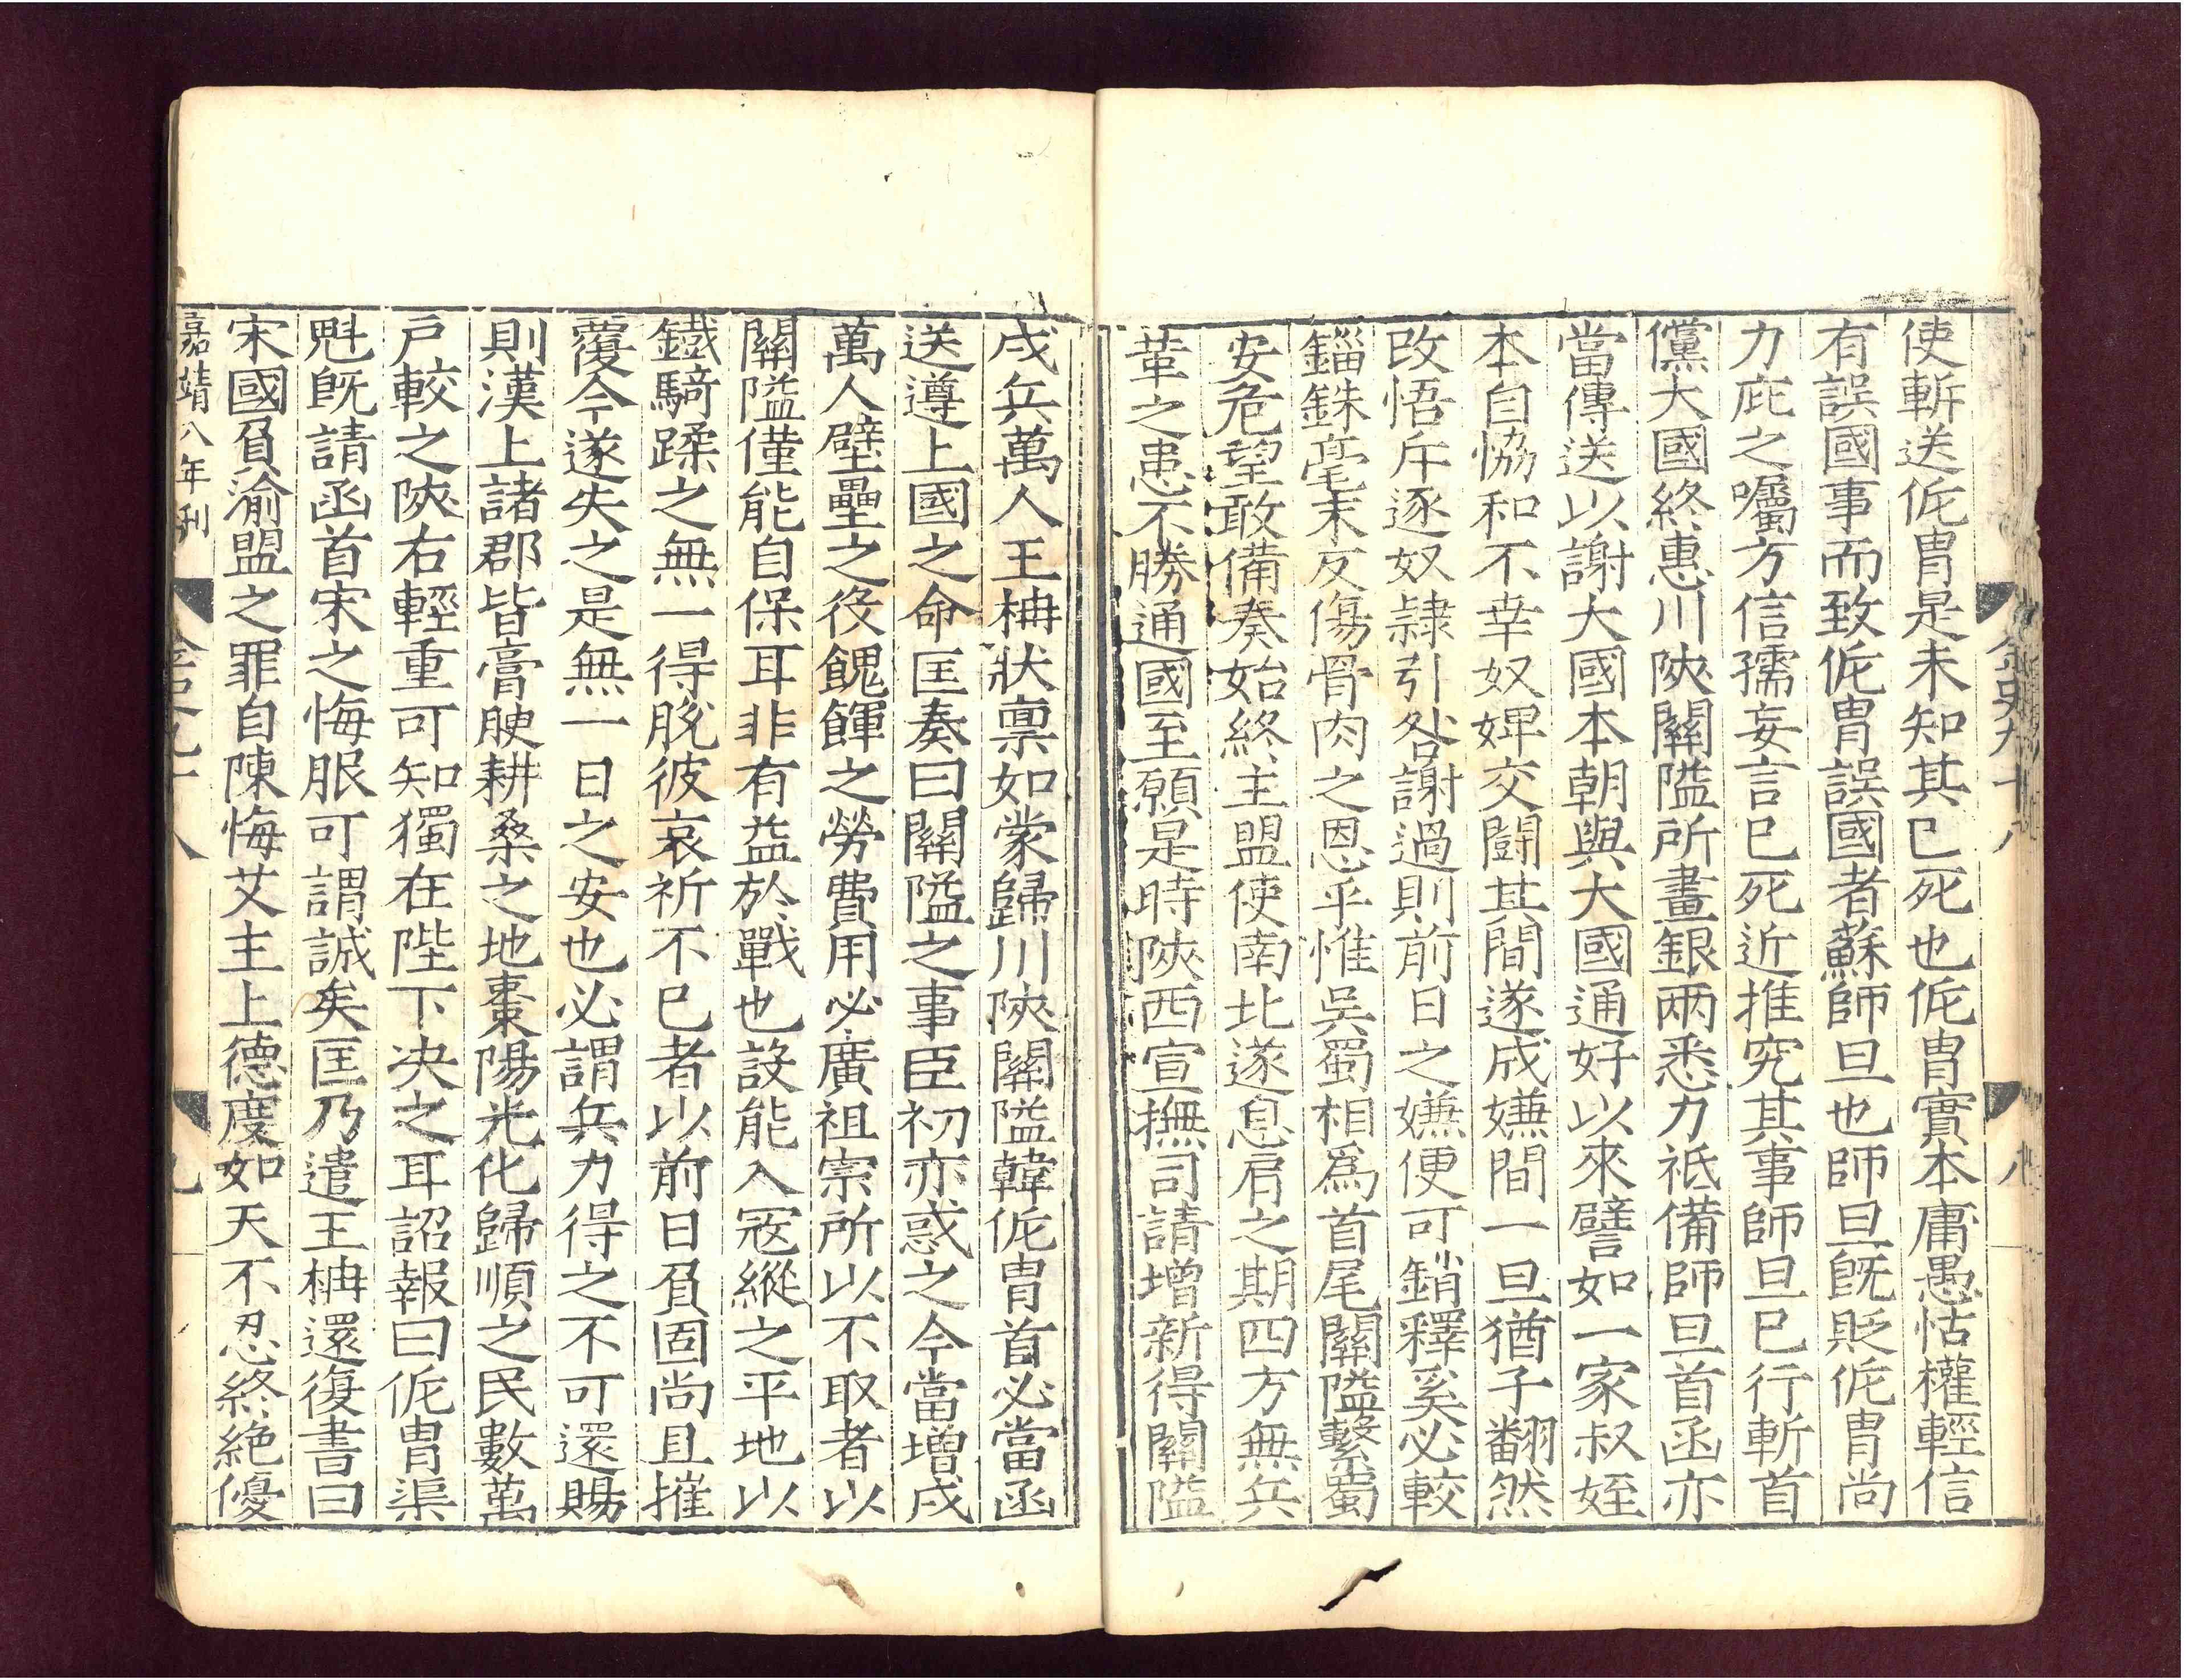 金史九十八 八
使斬送侂冑是未知其已死也侂冑實本庸愚怙權輕信
有誤國事而致侂冑誤國者蘇師旦也師旦既貶侂冑尚
力庇之囑方信孺妄言已死近推究其事師旦已行斬首
儻大國終惠川陝關隘所畫銀兩悉力祇備師旦首函亦
當傳送以謝大國本朝與大國通好以來譬如一家叔姪
本自恊和不幸奴婢交鬪其間遂成嫌間一旦猶子翻然
改悟斥逐奴隷引咎謝過則前日之嫌便可銷釋奚必較
錙銖毫末反傷骨肉之恩乎惟吳蜀相爲首尾關隘繫蜀
安危望敢備奏始終主盟使南北遂息肩之期四方無兵
革之患不勝通國至願是時陝西宣撫司請增新得關隘
戍兵萬人王柟狀禀如蒙歸川陝關隘韓侂冑首必當函
送遵上國之命匡奏曰關隘之事臣初亦惑之今當增戍
萬人壁壘之役餽餫之勞費用必廣祖宗所以不取者以
關隘僅能自保耳非有益於戰也設能入寇縱之平地以
鐵騎蹂之無一得脫彼哀祈不已者以前日負固尚且摧
覆今遂失之是無一日之安也必謂兵力得之不可還賜
則漢上諸郡皆膏腴耕桑之地棗陽光化歸順之民數萬
戶較之陝右輕重可知獨在陛下决之耳詔報曰侂冑渠
魁旣請函首宋之悔服可謂誠矣匡乃遣王柟還復書曰
宋國負渝盟之罪自陳悔艾主上德度如天不忍終絶優
嘉靖八年刊 金史九十八 九